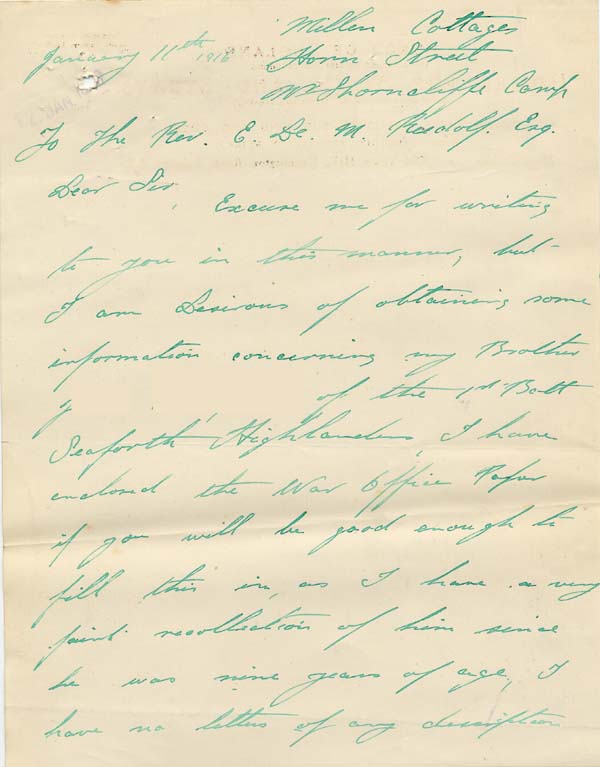 Millen Cottages
January 11th 1916 Horn Street
Nr Shorncliffe Camp
To The Rev. E. De. M. Rudolf. Esq.
Dear Sir,
Excuse me for writing
to you in this manner, but
I am Desirous of obtaining some
information concerning my Brother
of the 1st Batt
Seaforth Highlanders, I have
enclosed the War Office Paper
if you will be good enough to
fill this in, as I have a very
faint recollection of him since
he was nine years of age, I
have no letters of any description